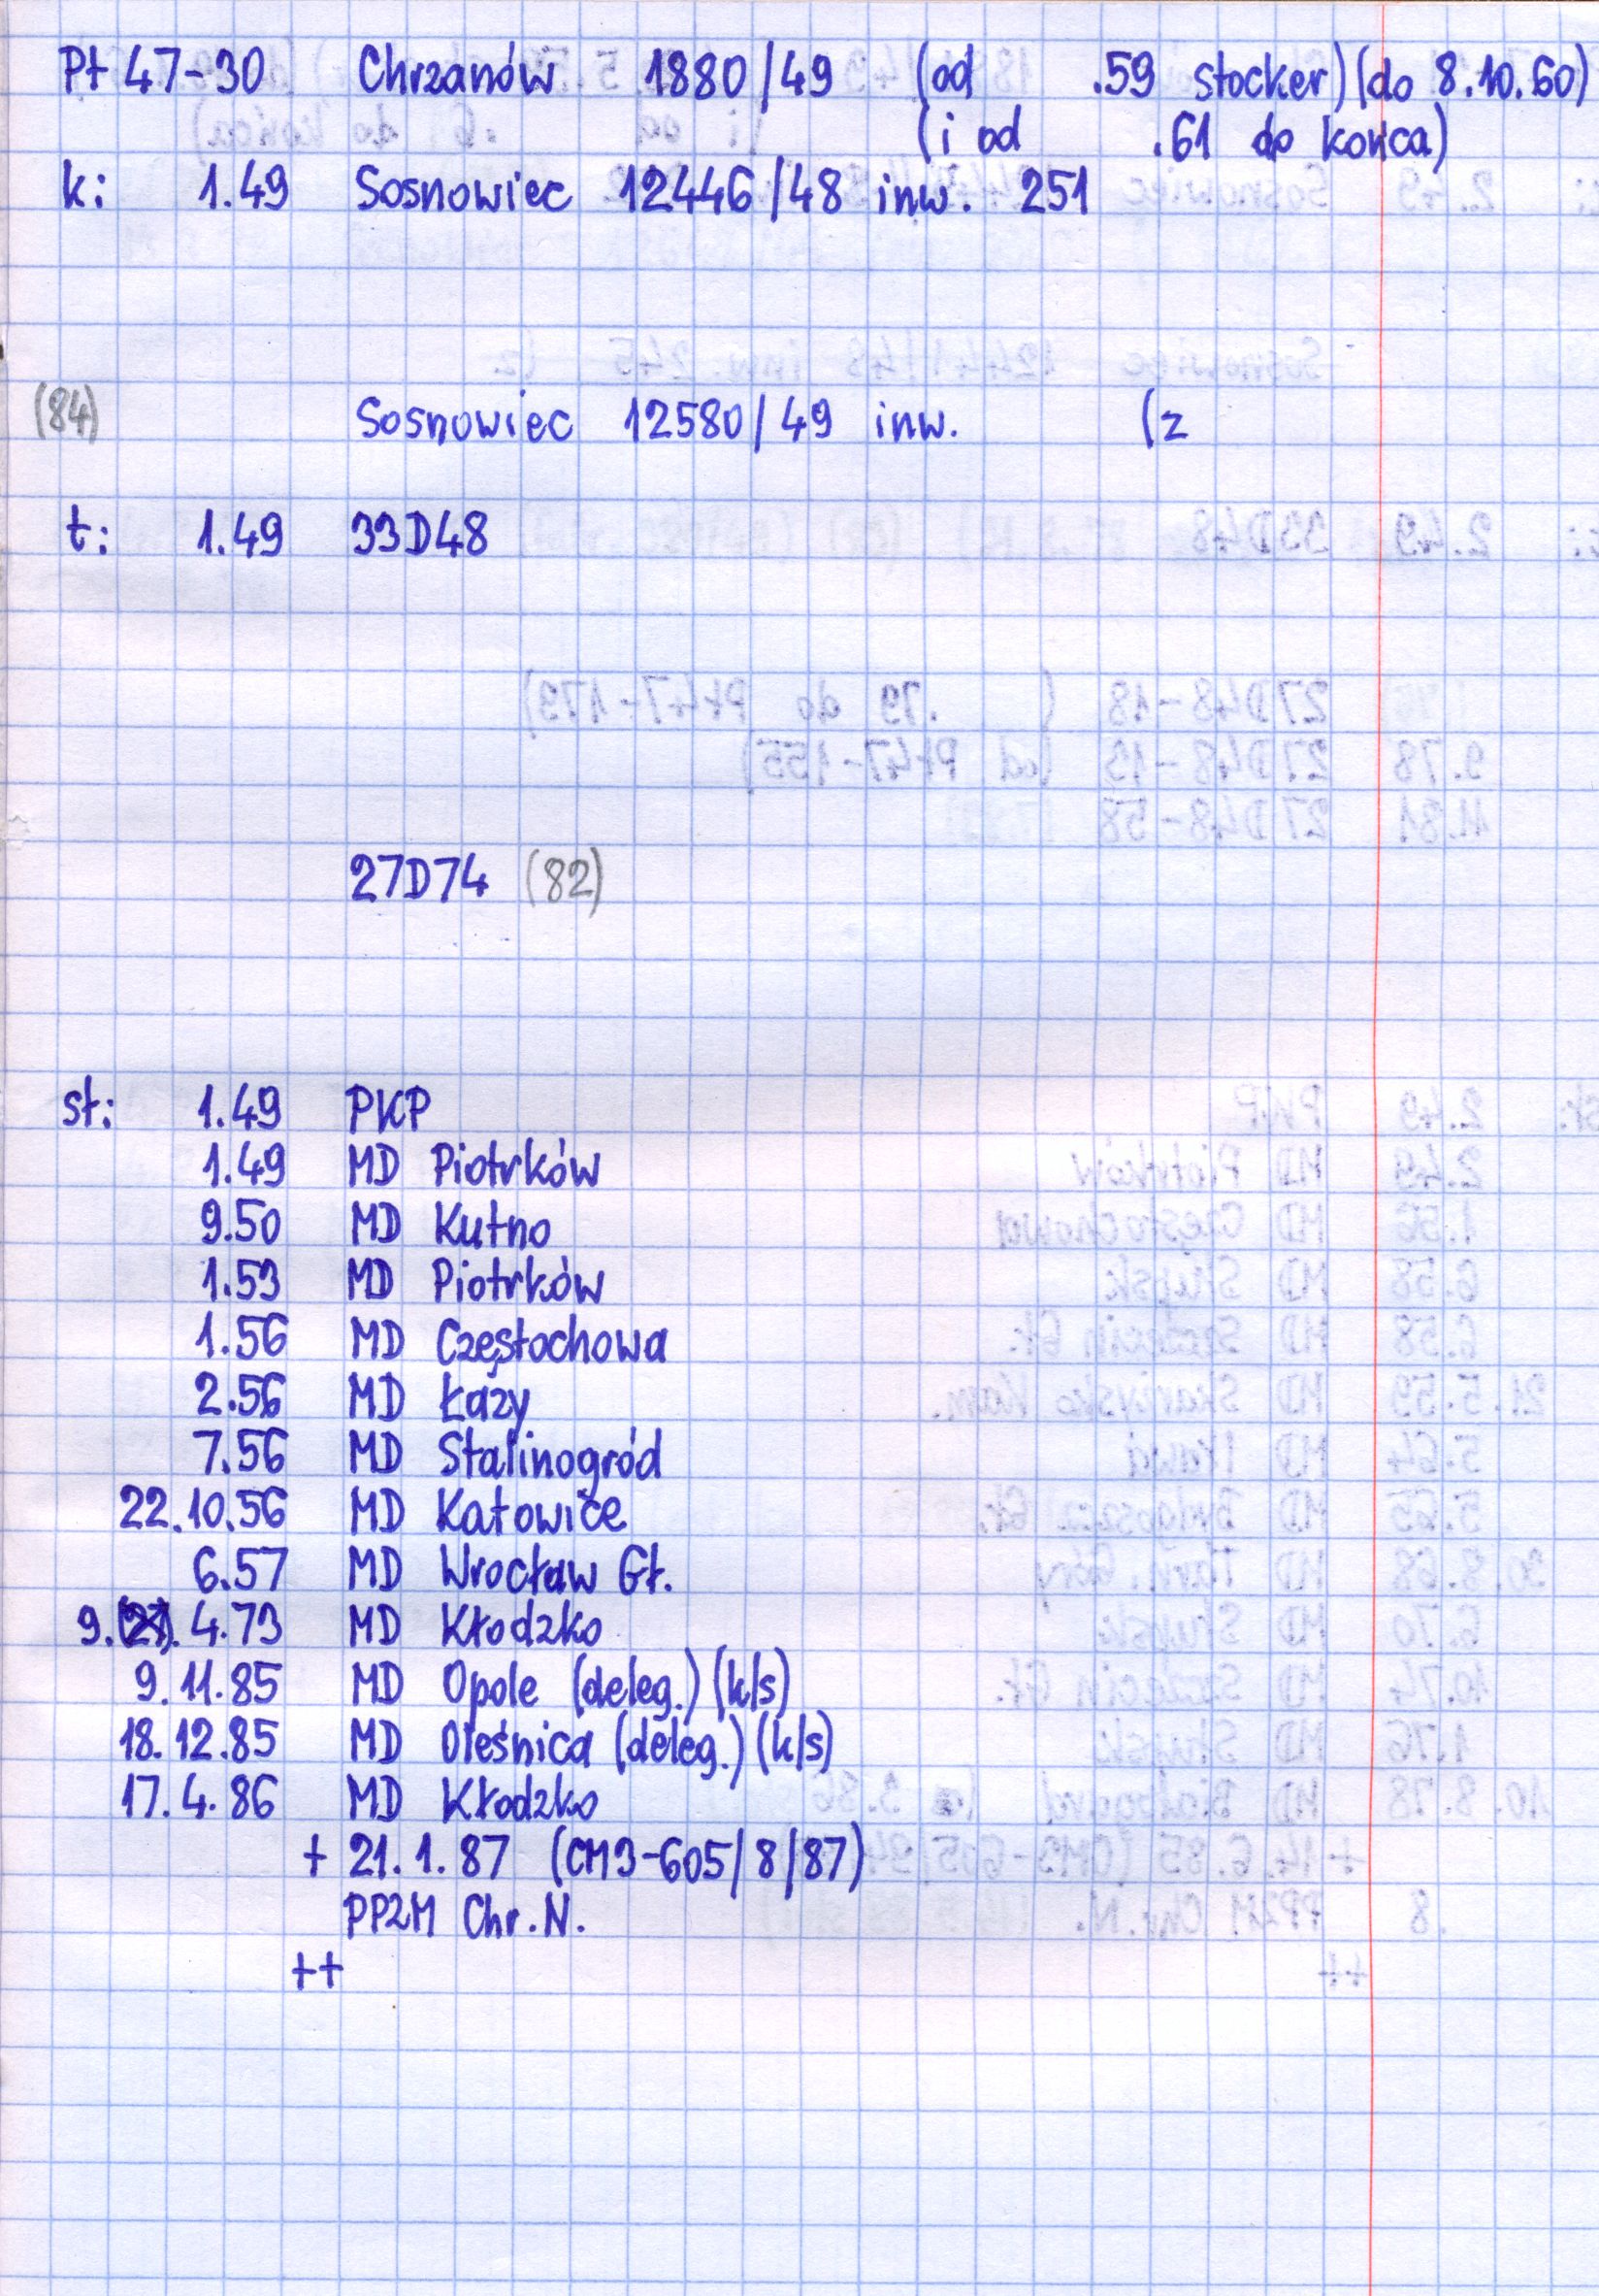 Pt 47-30 Chrzanów 1880/49 (od .59 stocker) (do 8.10.60)
(i od .61 do końca)
k: 1.49 Sosnowiec 12446/48 inw. 251
(84) Sosnowiec 12580/49 inw. (z
t: 1.49 33D48
27D74 (82)
st: 1.49 PKP
1.49 MD Piotrków
9.50 MD Kutno
1.53 MD Piotrków
1.56 MD Częstochowa
2.56 MD Łazy
7.56 MD Stalinogród
22.10.56 MD Katowice
6.57 MD Wrocław Gł.
9. 4.73 MD Kłodzko
9.11.85 MD Opole (deleg.) (k/s)
18.12.85 MD Oleśnica (deleg.) (k/s)
17.4.86 MD Kłodzko
+ 21.1.87 (CM3-605/8/87)
PP2M Chr.N.
++